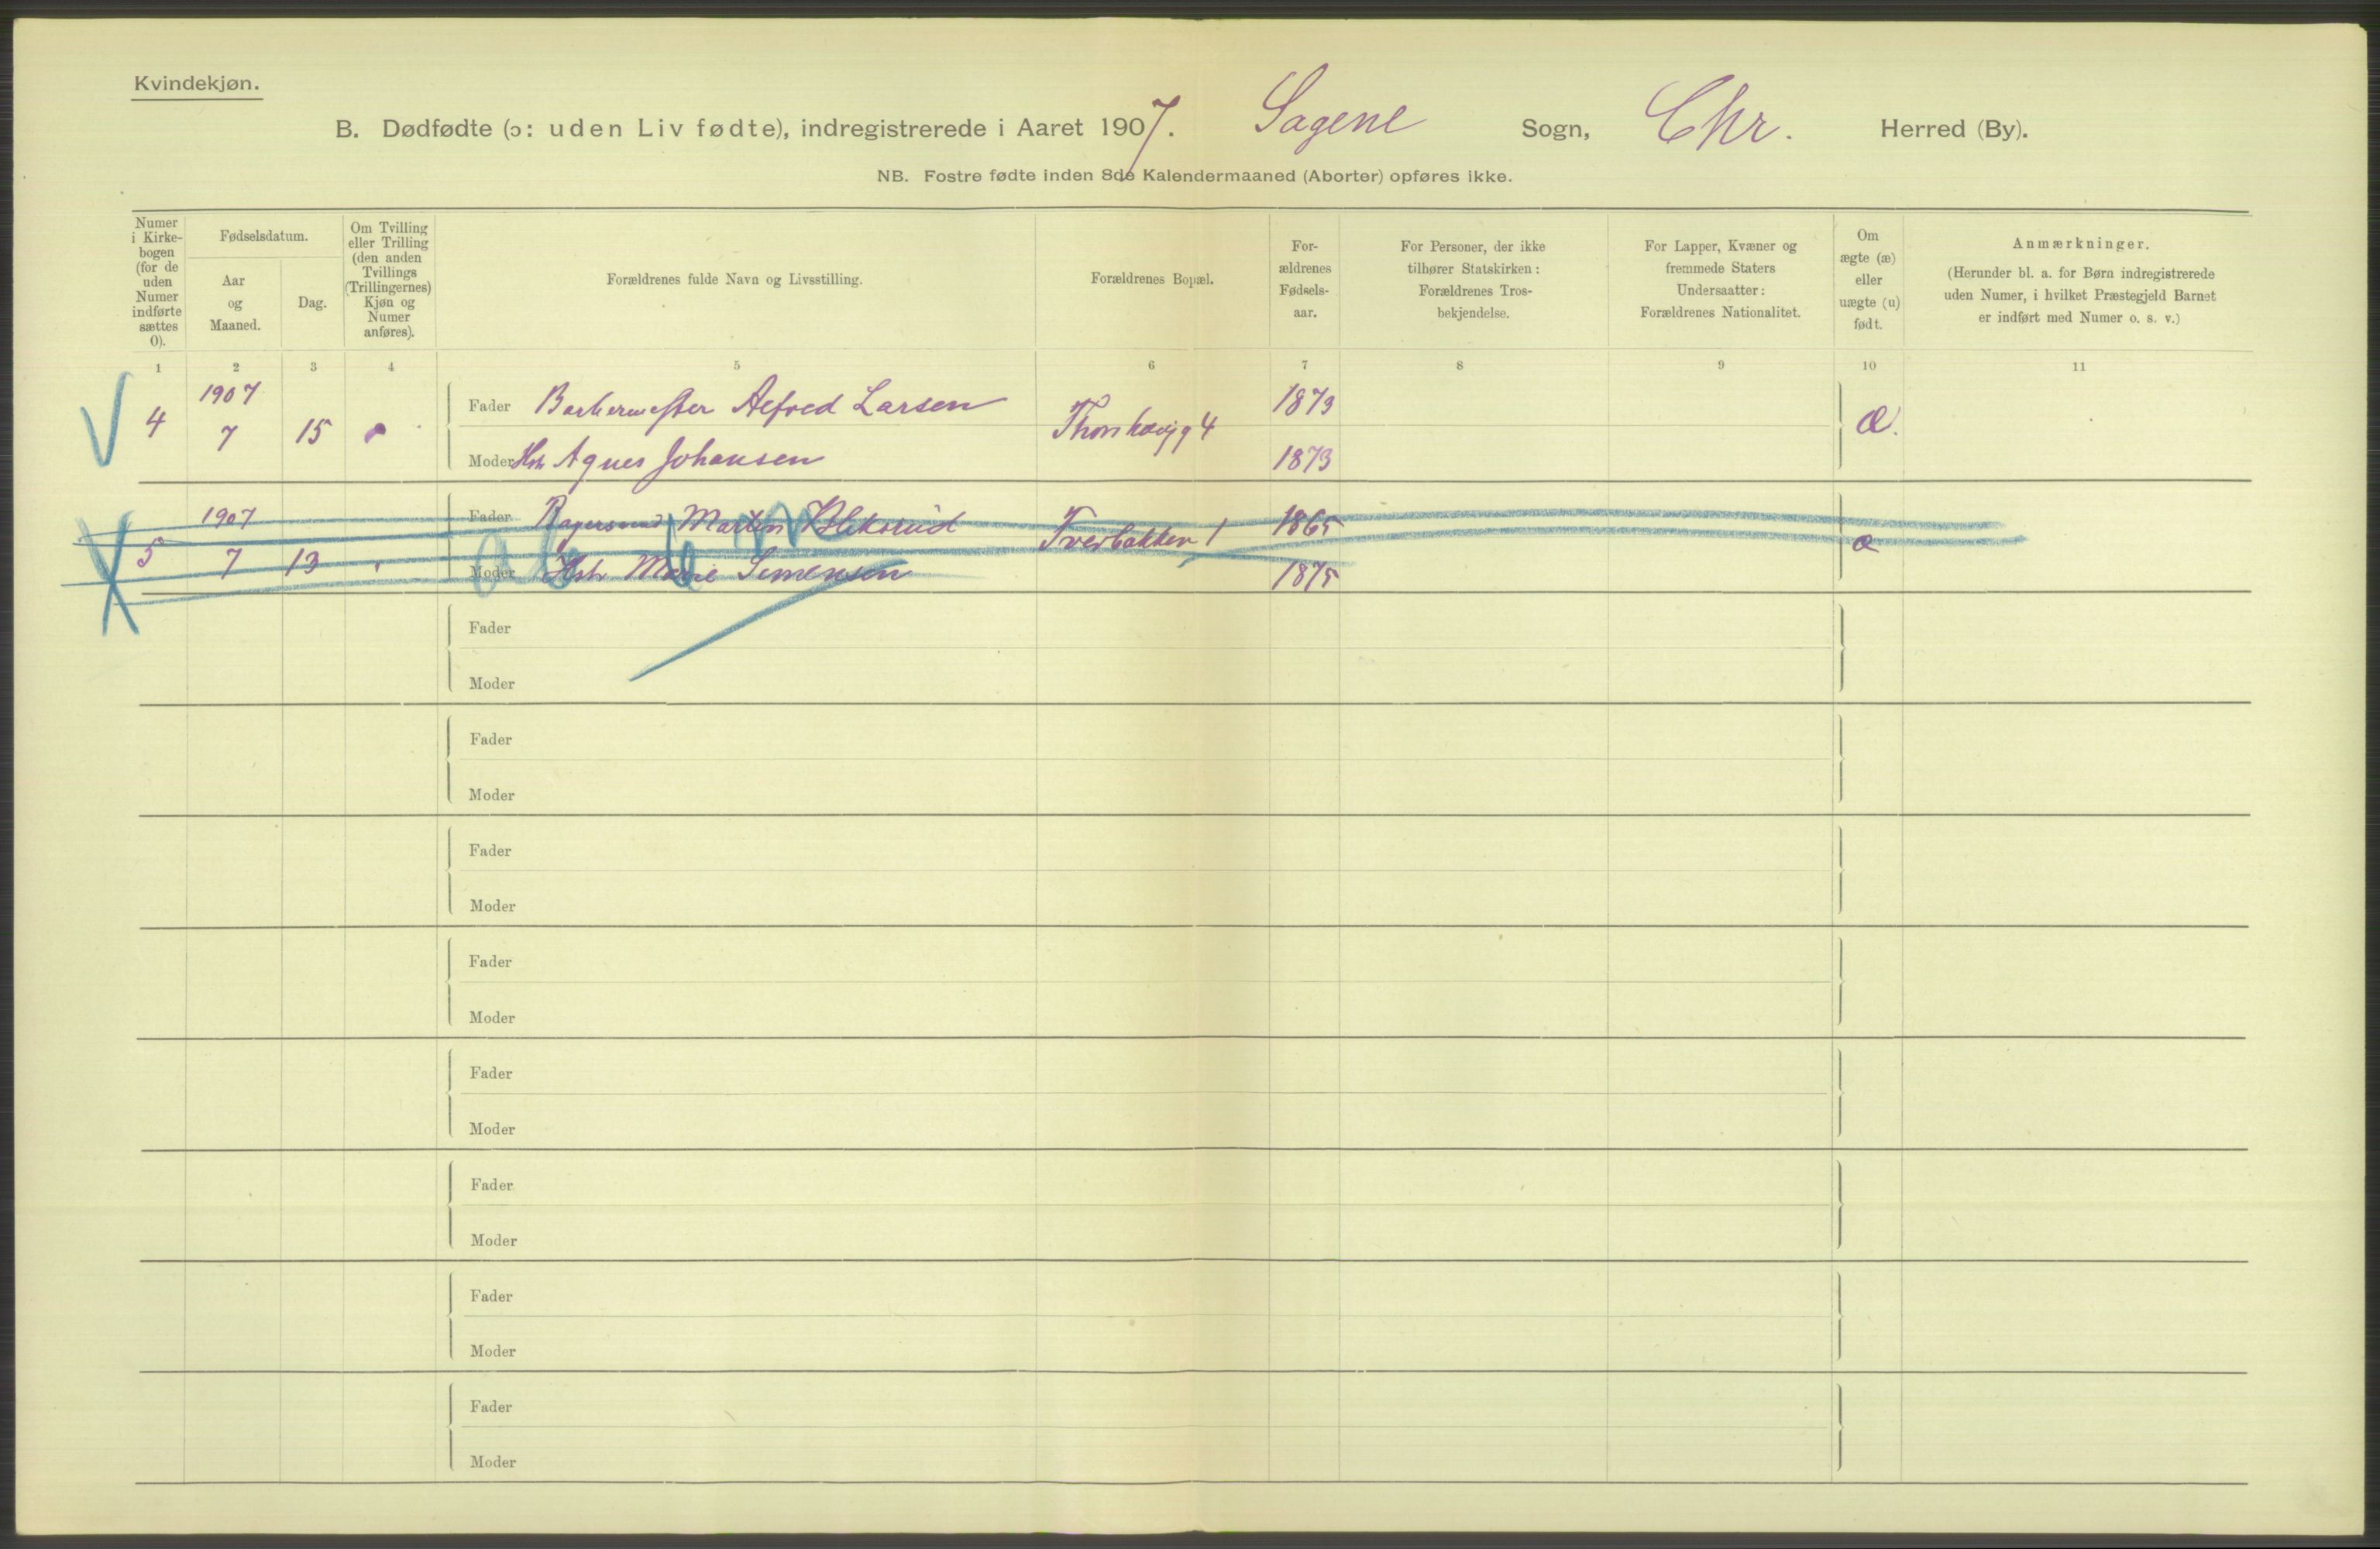 Kvindekjøn.
B. Dødfødte (ɔ: uden Liv fødte), indregistrerede i Aaret 1907. Sagene Sogn, Chr. Herred (By).
NB. Fostre fødte inden 8de Kalendermaaned (Aborter) opføres ikke.
Numer
i Kirke-
bogen
(for de
uden
Numer
indførte
sættes
0).
Fødselsdatum.
Aar
og
Maaned.
Dag.
Om Tvilling
eller Trilling
(den anden
Tvillings
(Trillingernes)
Kjøn og
Numer
anføres).
Forældrenes fulde Navn og Livsstilling.
Forældrenes Bopæl.
For-
ældrenes
Fødsels-
aar.
For Personer, der ikke
tilhører Statskirken:
Forældrenes Tros-
bekjendelse.
For Lapper, Kvæner og
fremmede Staters
Undersaatter:
Forældrenes Nationalitet.
Om
ægte (æ)
eller
uægte (u)
født.
Anmærkninger.
(Herunder bl. a. for Børn indregistrerede
uden Numer, i hvilket Præstegjeld Barnet
er indført med Numer o. s. v.)
1 2 3 4 5 6 7 8 9 10 11
1907
4 7 15
Fader Barbermester Alfred Larsen 1873
Thorshovg 4 Æ.
Moder Hstr Agnes Johansen 1873
1907
5 7 13
Fader Martin 1865
Tverbakken 1 æ
Moder Hstr Marie Simensen 1875
Fader
Moder
Fader
Moder
Fader
Moder
Fader
Moder
Fader
Moder
Fader
Moder
Fader
Moder
Fader
Moder